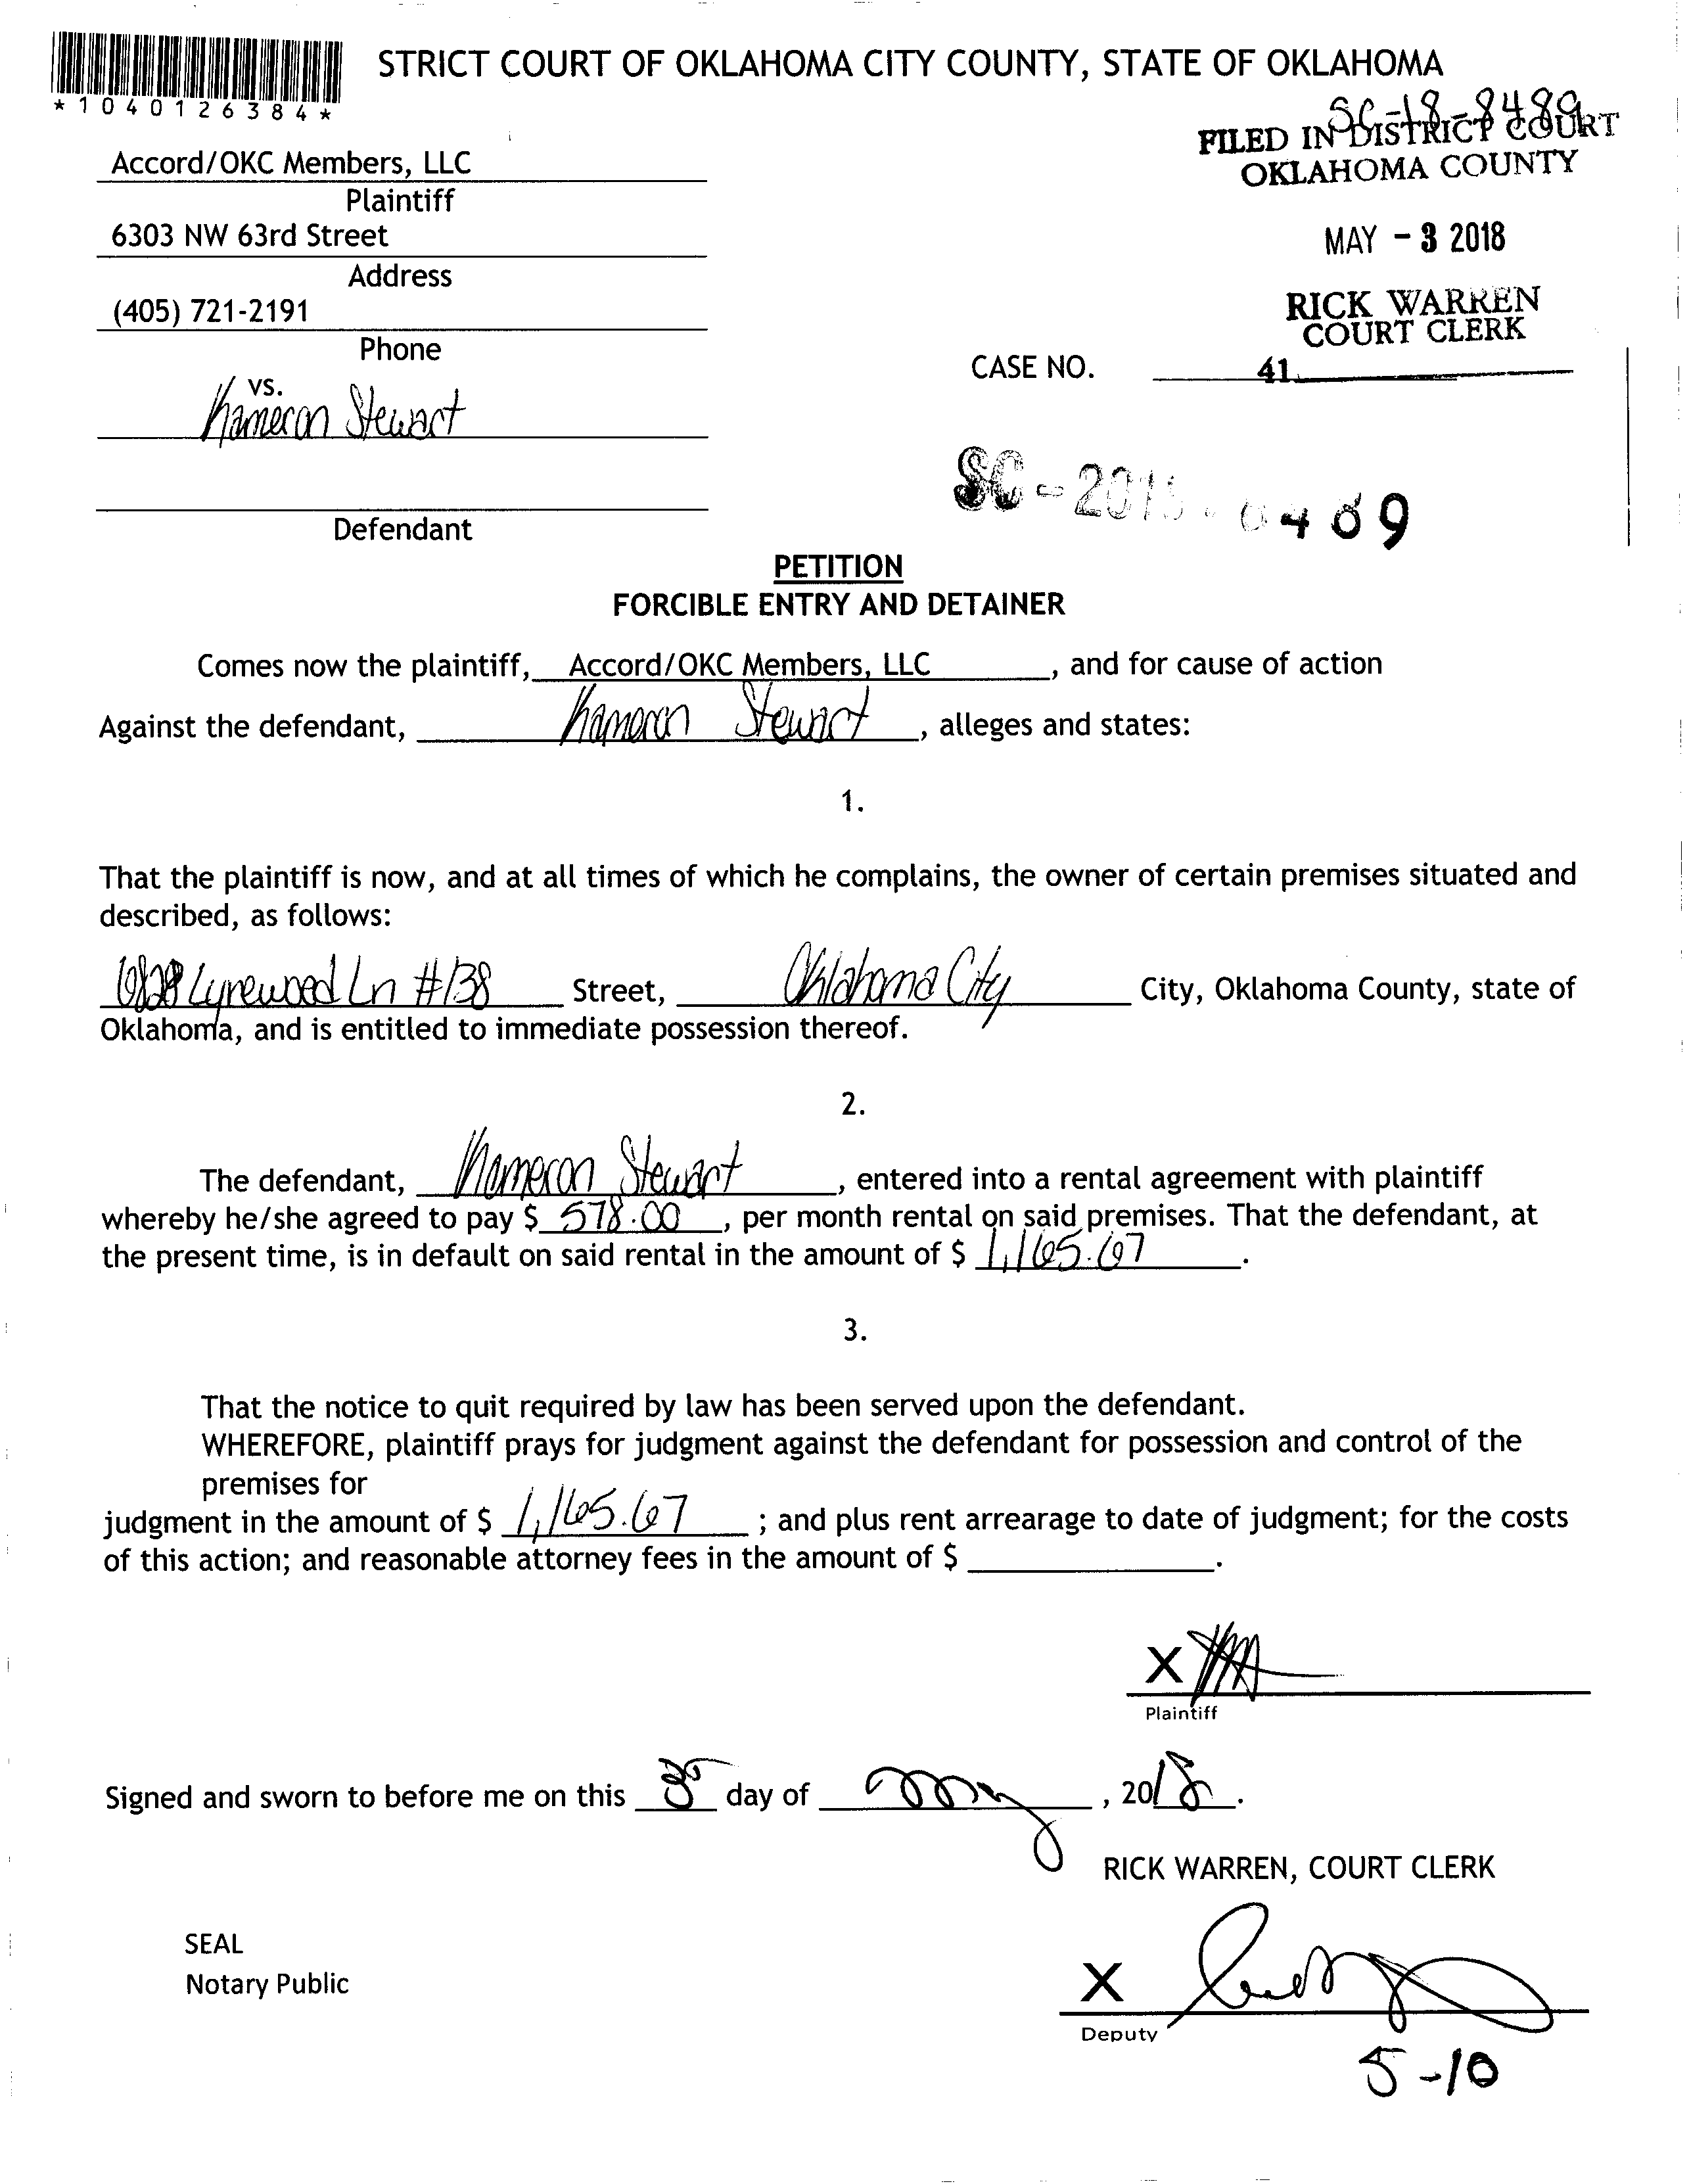 STRICT COURT OF OKLAHOMA CITY COUNTY, STATE OF OKLAHOMA
*1040126384*
SC-18-8489
FILED IN DISTRICT COURT
OKLAHOMA COUNTY
Accord/OKC Members, LLC
Plaintiff
6303 NW 63rd Street
MAY - 3 2018
Address
(405) 721-2191
RICK WARREN
COURT CLERK
Phone
CASE NO. 41
vs.
Kameron Stewart
SC - 201
Defendant
PETITION
FORCIBLE ENTRY AND DETAINER
Comes now the plaintiff, Accord/OKC Members, LLC , and for cause of action
Against the defendant, Kameron Stewart , alleges and states:
1.
That the plaintiff is now, and at all times of which he complains, the owner of certain premises situated and
described, as follows:
Lyrewood Ln #138 Street, Oklahoma City City, Oklahoma County, state of
Oklahoma, and is entitled to immediate possession thereof.
2.
The defendant, Kameron Stewart , entered into a rental agreement with plaintiff
whereby he/she agreed to pay $ 578.00 , per month rental on said premises. That the defendant, at
the present time, is in default on said rental in the amount of $ 1,165.67 .
3.
That the notice to quit required by law has been served upon the defendant.
WHEREFORE, plaintiff prays for judgment against the defendant for possession and control of the
premises for
judgment in the amount of $ 1,165.67 ; and plus rent arrearage to date of judgment; for the costs
of this action; and reasonable attorney fees in the amount of $ .
X
Plaintiff
Signed and sworn to before me on this 3 day of May , 2018 .
RICK WARREN, COURT CLERK
SEAL
Notary Public
X
Deputy
5-10